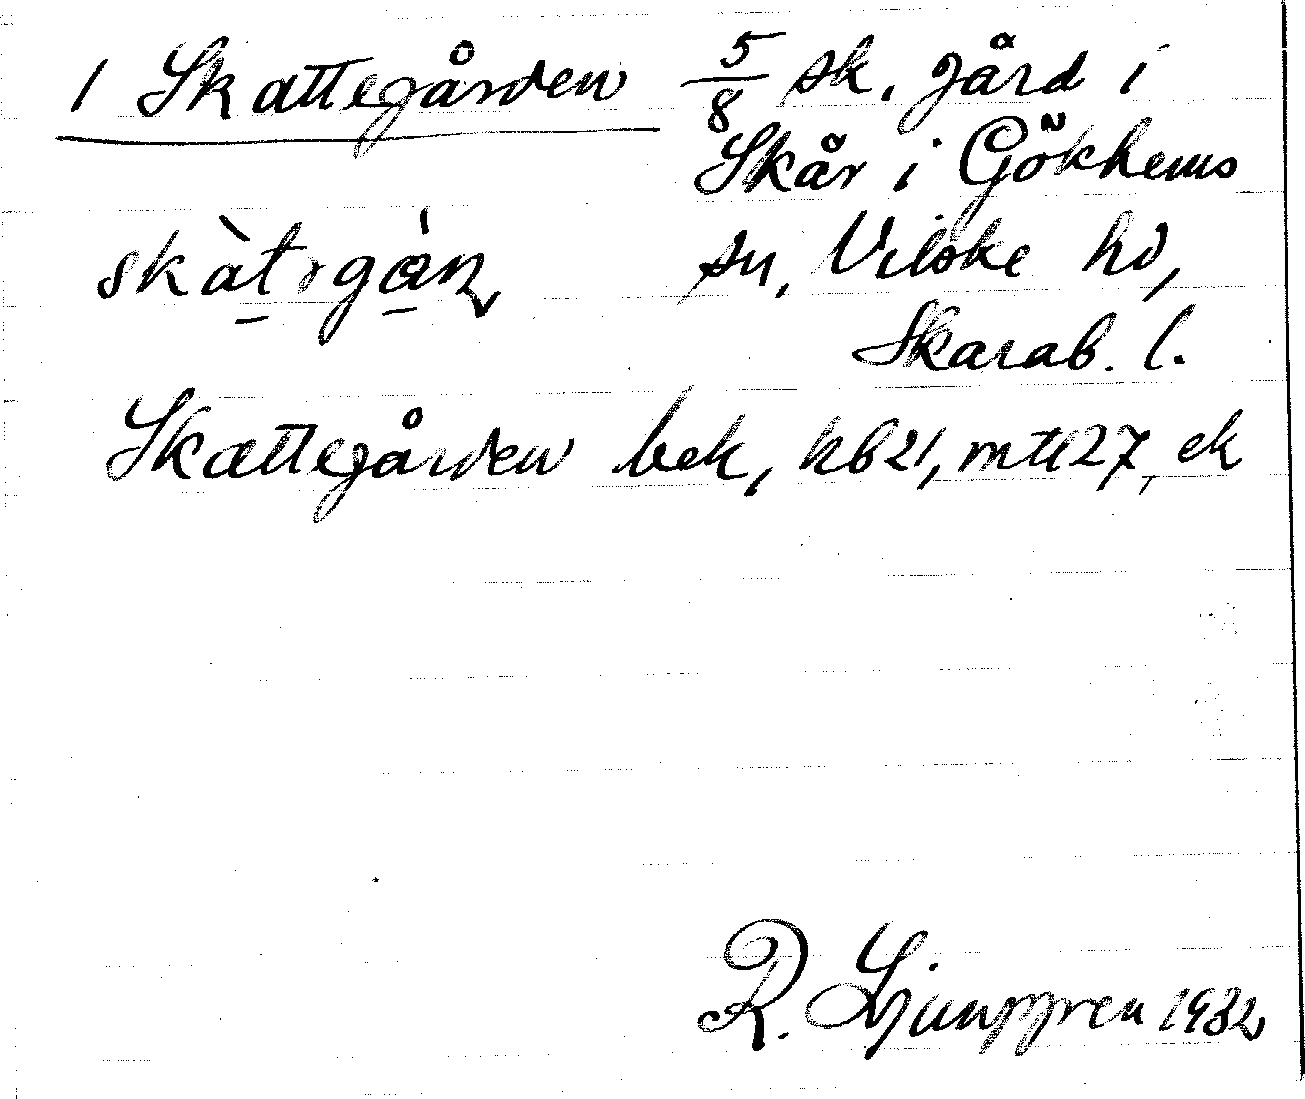 1 Skattegården 5/8 sk. gård i
Skår i Gökhems
skàtrgàn sn, Vilske hd,
Skarab. l.
Skattegården bek, kb21, mtl27, ek
R. Ljunggren 1932